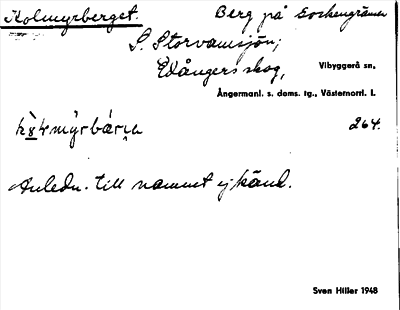 Kolmyrberget. Berg på Sockengränsen
S. Storvamsjön;
Edångers skog, Vibyggerå sn.
Ångermanl. s. doms. tg., Västernorrl. l.
264.
Anledn. till namnet ej känd.
Sven Hiller 1948